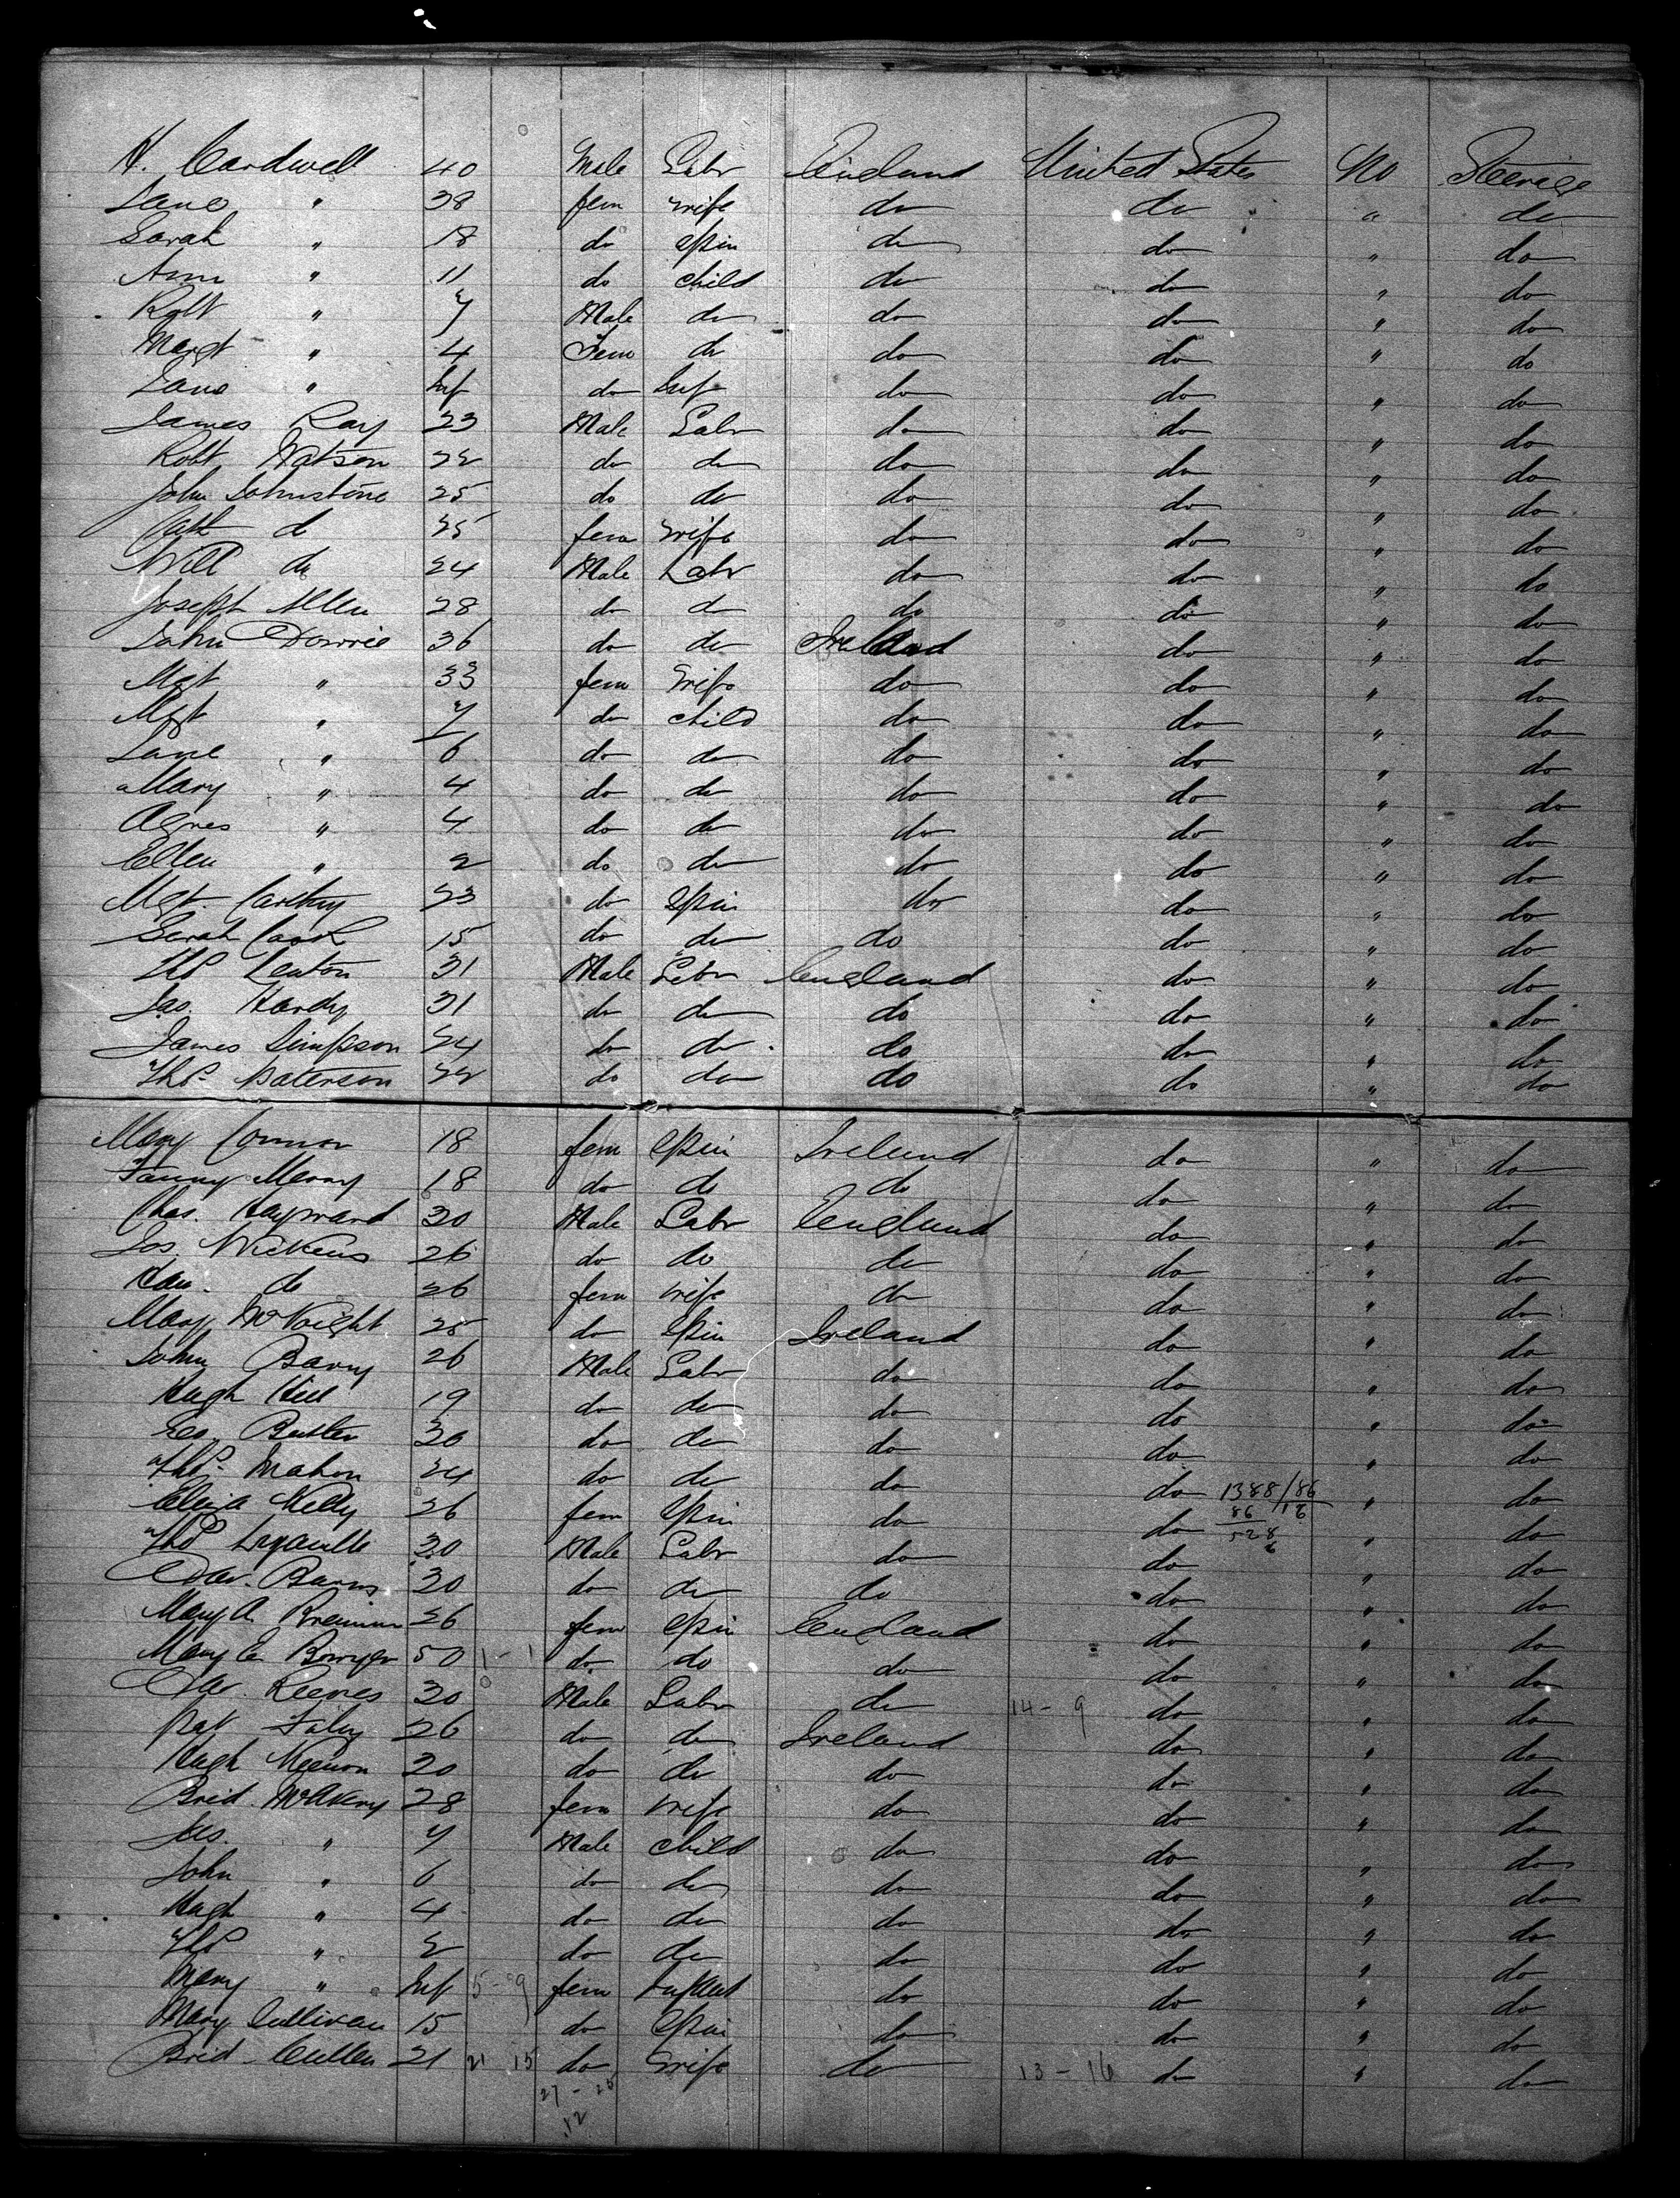 H. Cardwell 40 Male Labr England United States No Steerige
Jane " 38 fem wife do do " do
Sarah " 18 do Spin do do " do
Ann " 11 do child do do " do
Robt " 7 Male do do do " do
Margt " 4 Fem do do do " do
Jane " Inf do Inf do do " do
James Ray 23 Male Labr do do " do
Robt Watson 22 do do do do " do
John Johnstone 25 do do do do " do
Cath do 25 fem wife do do " do
Will do 24 Male Labr do do " do
Joseph Allen 28 do do do do " do
John Dowrie 36 do do Ireland do " do
Mgt " 33 fem Wife do do " do
Mgt " 7 do child do do " do
Jane " 6 do do do do " do
Mary " 4 do do do do " do
Agnes " 4 do do do do " do
Ellen " 2 do do do do " do
Mgt. Carthy 23 do Spin do do " do
Sarah Cook 15 do do do do " do
Thos Lenton 31 Male Labr England do " do
Jas. Hardy 31 do do do do " do
James Simpson 24 do do do do " do
Thos. Paterson 22 do do do do " do
Mary Connor 18 fem Spin Ireland do " do
Fanny Merry 18 do do do do " do
Chas. Hayward 30 Male Labr England do " do
Jos. Wickens 26 do do do do " do
Han. do 26 fem wife do do " do
Mary McKnight 25 do Spin Ireland do " do
John Barry 26 Male Labr do do " do
Hugh Hill 19 do do do do " do
Geo. Butler 30 do do do do " do
Thos. Mahon 24 do do do do 1388/86 " do
Eliza Kelly 26 fem Spin do do 86 16 " do
Thos 30 Male Labr do do 528 " do
Dav. Barns 30 do do do do " do
Mary A. Brennan 26 fem Spin England do " do
Mary E. Bowyer 50 1-1 do do do do " do
Dav. Reeves 30 Male Labr do 14-9 do " do
Pat Foley 26 do do Ireland do " do
Hugh Keenon 20 do do do do " do
Brid. McAvery 28 fem wife do do " do
Jas. " 7 Male child do do " do
John " 6 do do do do " do
Hugh " 4 do do do do " do
Thos " 2 do do do do " do
Mary " Inf 5-9 fem Infant do do " do
Mary Sullivan 15 do Spin do do " do
Brid. Cullen 21 21 15 do Wife do 13-16 do " do
27-25
12